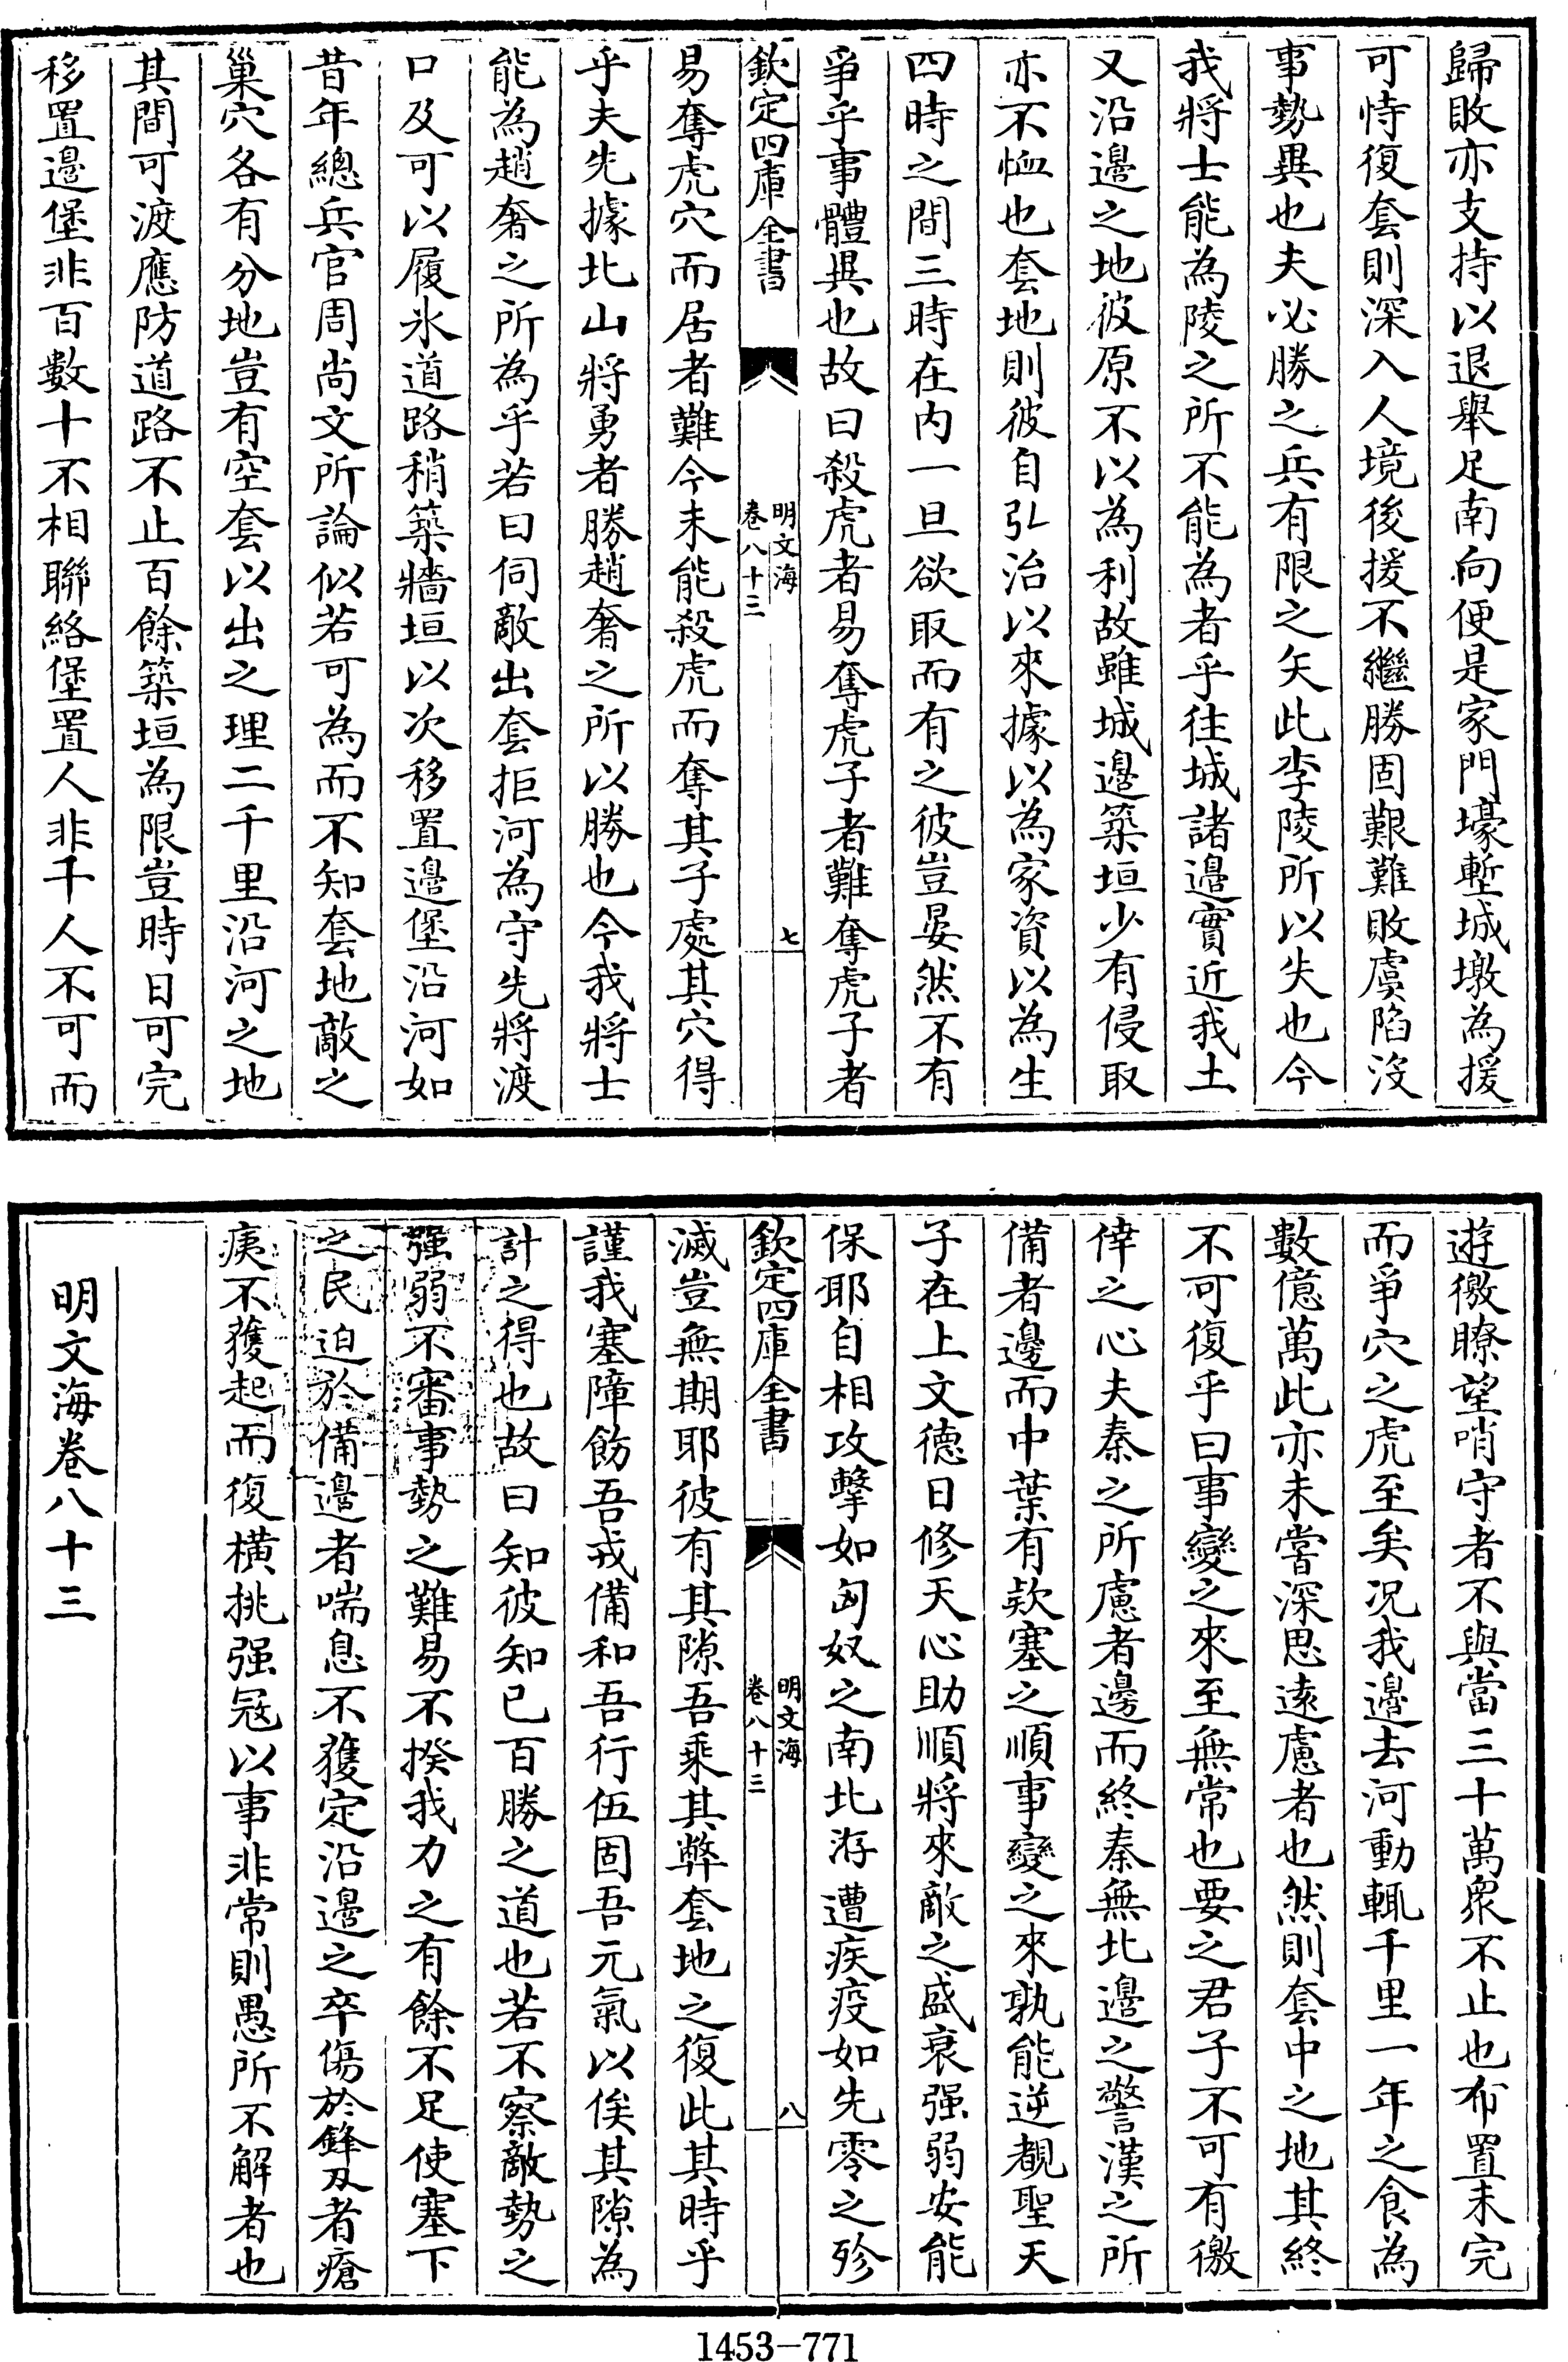 歸敗亦支持以退舉足南向便是家門壕塹城墩為援
可恃復套則深入人境後援不繼勝固艱難敗虞陷沒
事勢異也夫必勝之兵有限之矢此李陵所以失也今
我將士能為陵之所不能為者乎往城諸邊實近我土
又沿邊之地彼原不以為利故雖城邊築垣少有侵取
亦不恤也套地則彼自弘治以來據以為家資以為生
四時之間三時在内一旦欲取而有之彼豈晏然不有
爭乎事體異也故曰殺虎者易奪虎子者難奪虎子者
欽定四庫全書
明文海
卷八十三
七
易奪虎穴而居者難今未能殺虎而奪其子處其穴得
乎夫先據北山將勇者勝趙奢之所以勝也今我將士
能為趙奢之所為乎若曰伺敵出套拒河為守先將渡
口及可以履氷道路稍築牆垣以次移置邊堡沿河如
昔年總兵官周尚文所論似若可為而不知套地敵之
巢穴各有分地豈有空套以出之理二千里沿河之地
其間可渡應防道路不止百餘築垣為限豈時日可完
移置邊堡非百數十不相聯絡堡置人非千人不可而
遊徼瞭望哨守者不與當三十萬衆不止也布置未完
而爭穴之虎至矣况我邊去河動輒千里一年之食為
數億萬此亦未嘗深思逺慮者也然則套中之地其終
不可復乎曰事變之來至無常也要之君子不可有徼
倖之心夫秦之所慮者邊而終秦無北邊之警漢之所
備者邊而中葉有欵塞之順事變之來孰能逆覩聖天
子在上文德日修天心助順將來敵之盛衰强弱安能
保耶自相攻擊如匈奴之南北洊遭疾疫如先零之殄
欽定四庫全書
明文海
卷八十三
八
滅豈無期耶彼有其隙吾乘其弊套地之復此其時乎
謹我塞障飭吾戎備和吾行伍固吾元氣以俟其隙為
計之得也故曰知彼知已百勝之道也若不察敵勢之
强弱不審事勢之難易不揆我力之有餘不足使塞下
之民迫於備邊者喘息不獲定沿邊之卒傷於鋒刃者瘡
痍不獲起而復横挑强冦以事非常則愚所不解者也
明文海卷八十三
1453-771